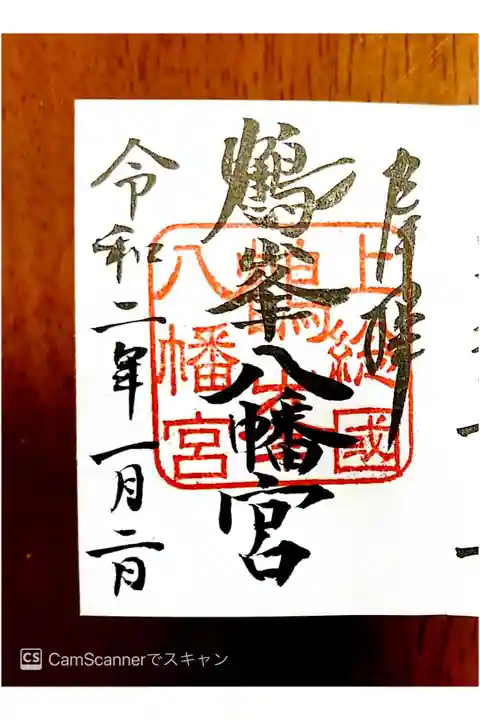 奉拝
鶴峯八幡宮
上総國
鶴峯
八幡宮
令和二年一月二日
CS CamScannerでスキャン